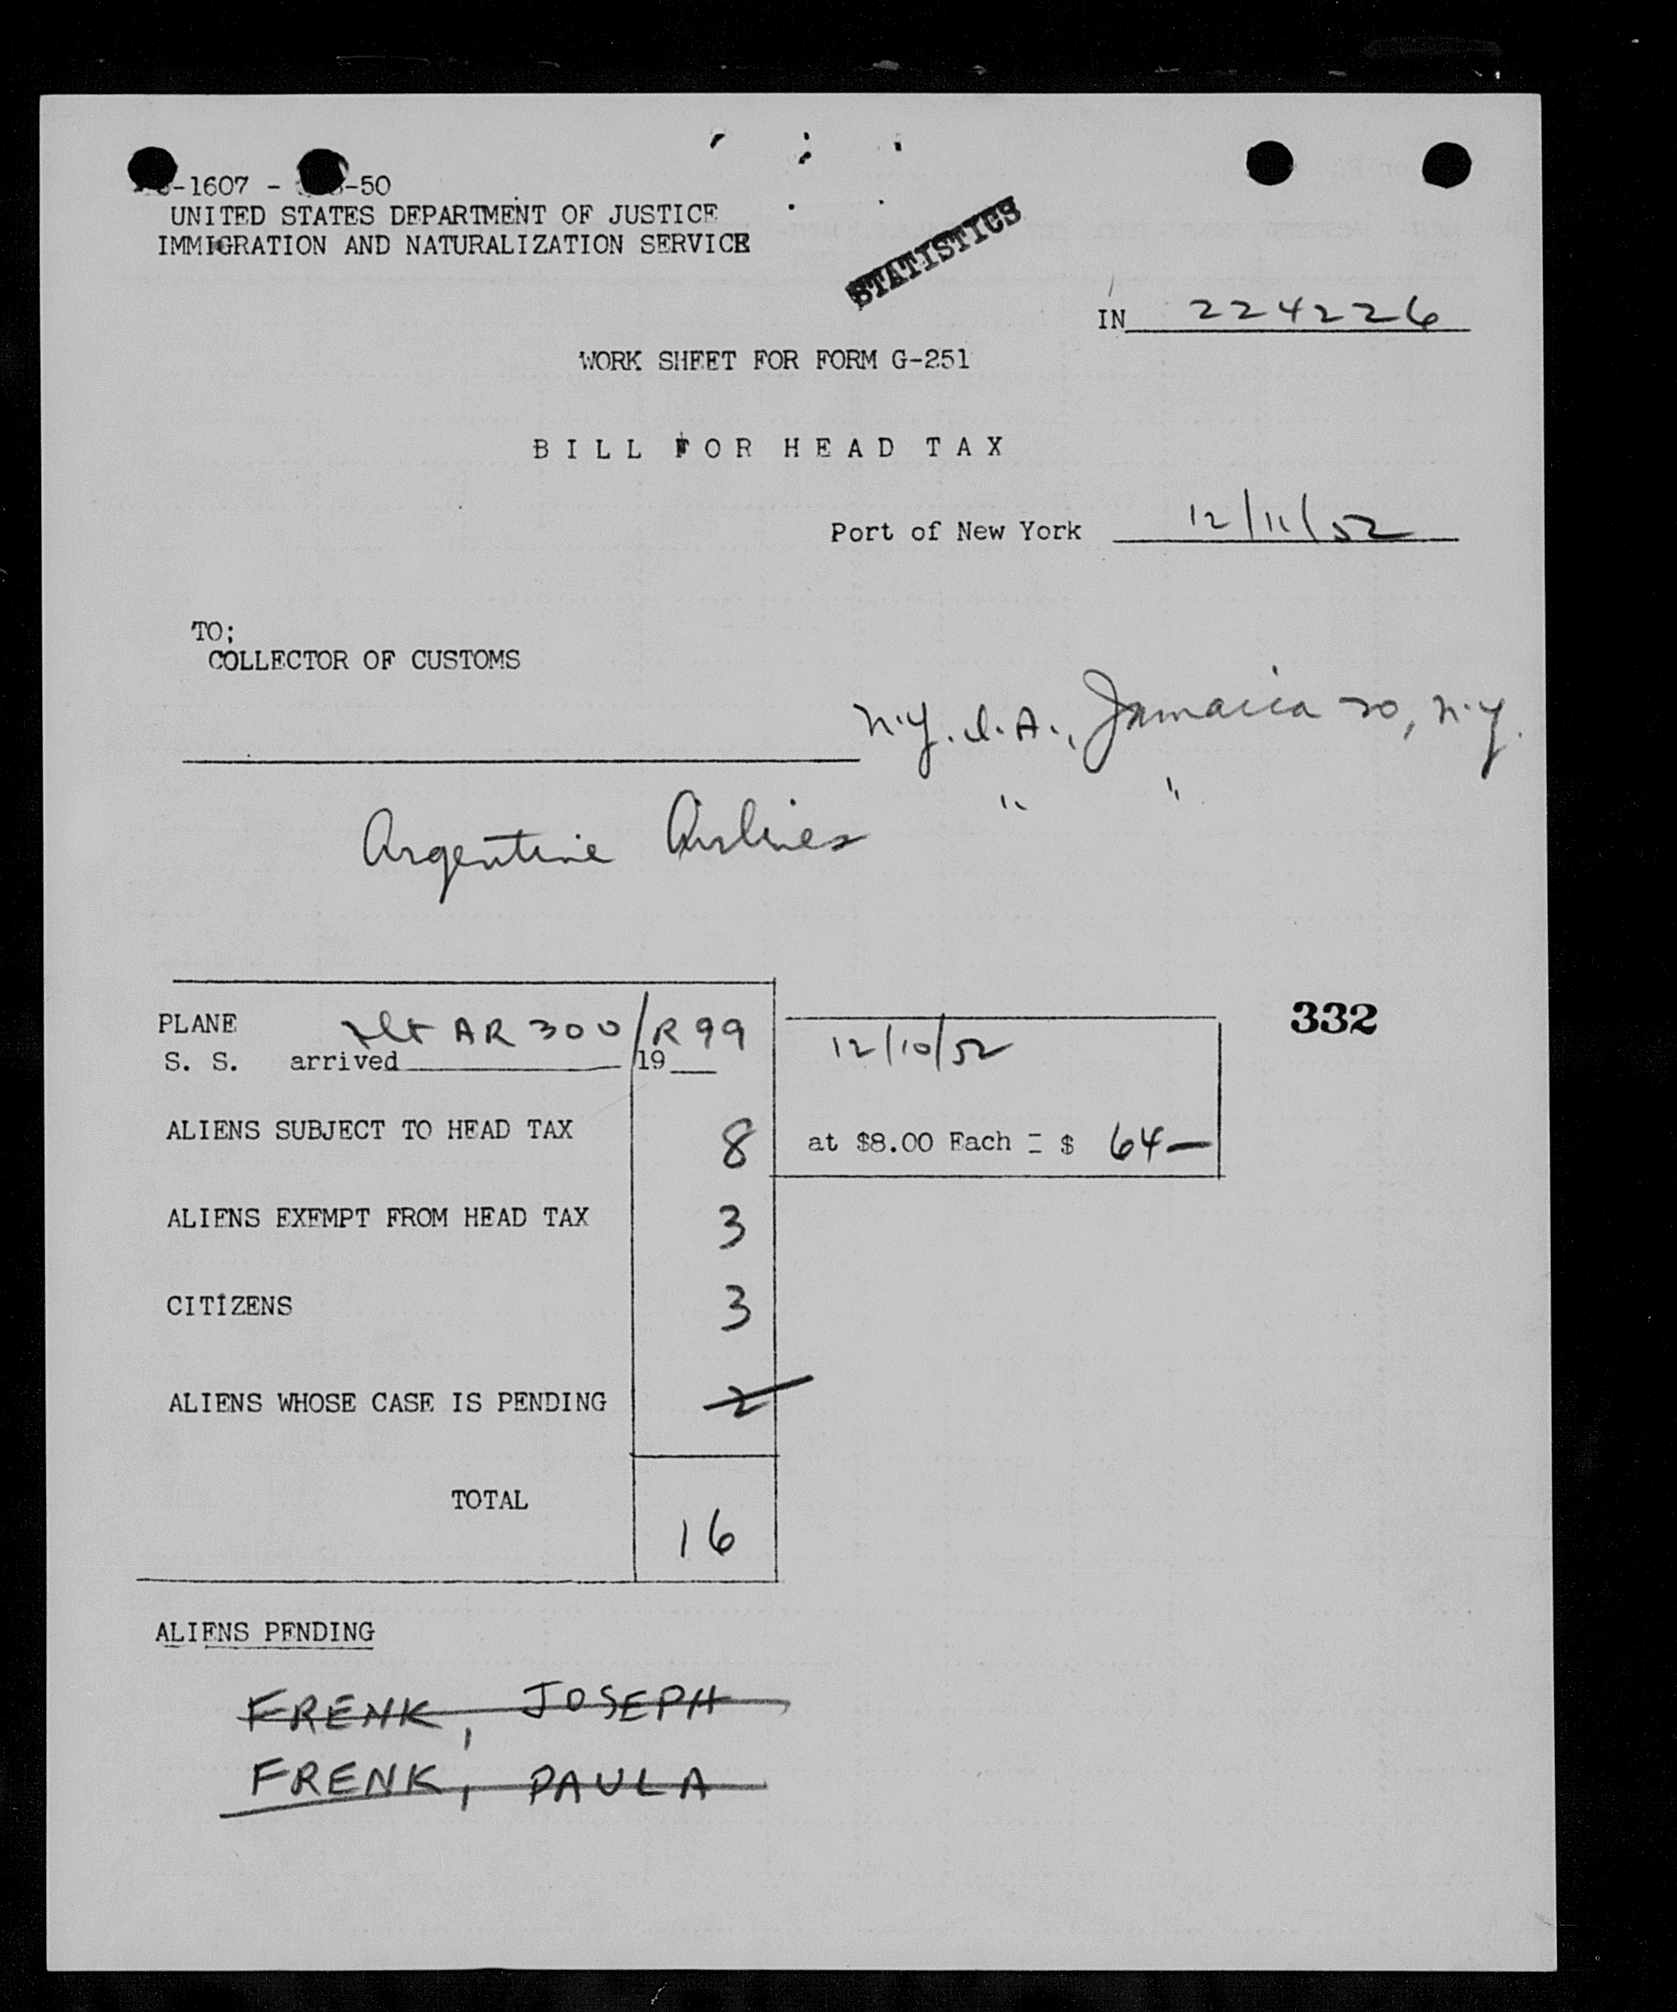 -1607 - -50
UNITED STATES DEPARTMENT OF JUSTICE
IMMIGRATION AND NATURALIZATION SERVICE
STATISTICS
IN 224226
WORK SHEET FOR FORM G-251
BILL FOR HEAD TAX
Port of New York 12/11/52
TO;
COLLECTOR OF CUSTOMS
N.Y.I.A., Jamaica 30, N.Y.
Argentine Airlines " "
PLANE flt AR 300/R99
S. S. arrived 19
12/10/52
332
ALIENS SUBJECT TO HEAD TAX 8 at $8.00 Each = $ 64—
ALIENS EXEMPT FROM HEAD TAX 3
CITIZENS 3
ALIENS WHOSE CASE IS PENDING 2
TOTAL 16
ALIENS PENDING
FRENK, JOSEPH
FRENK, PAULA